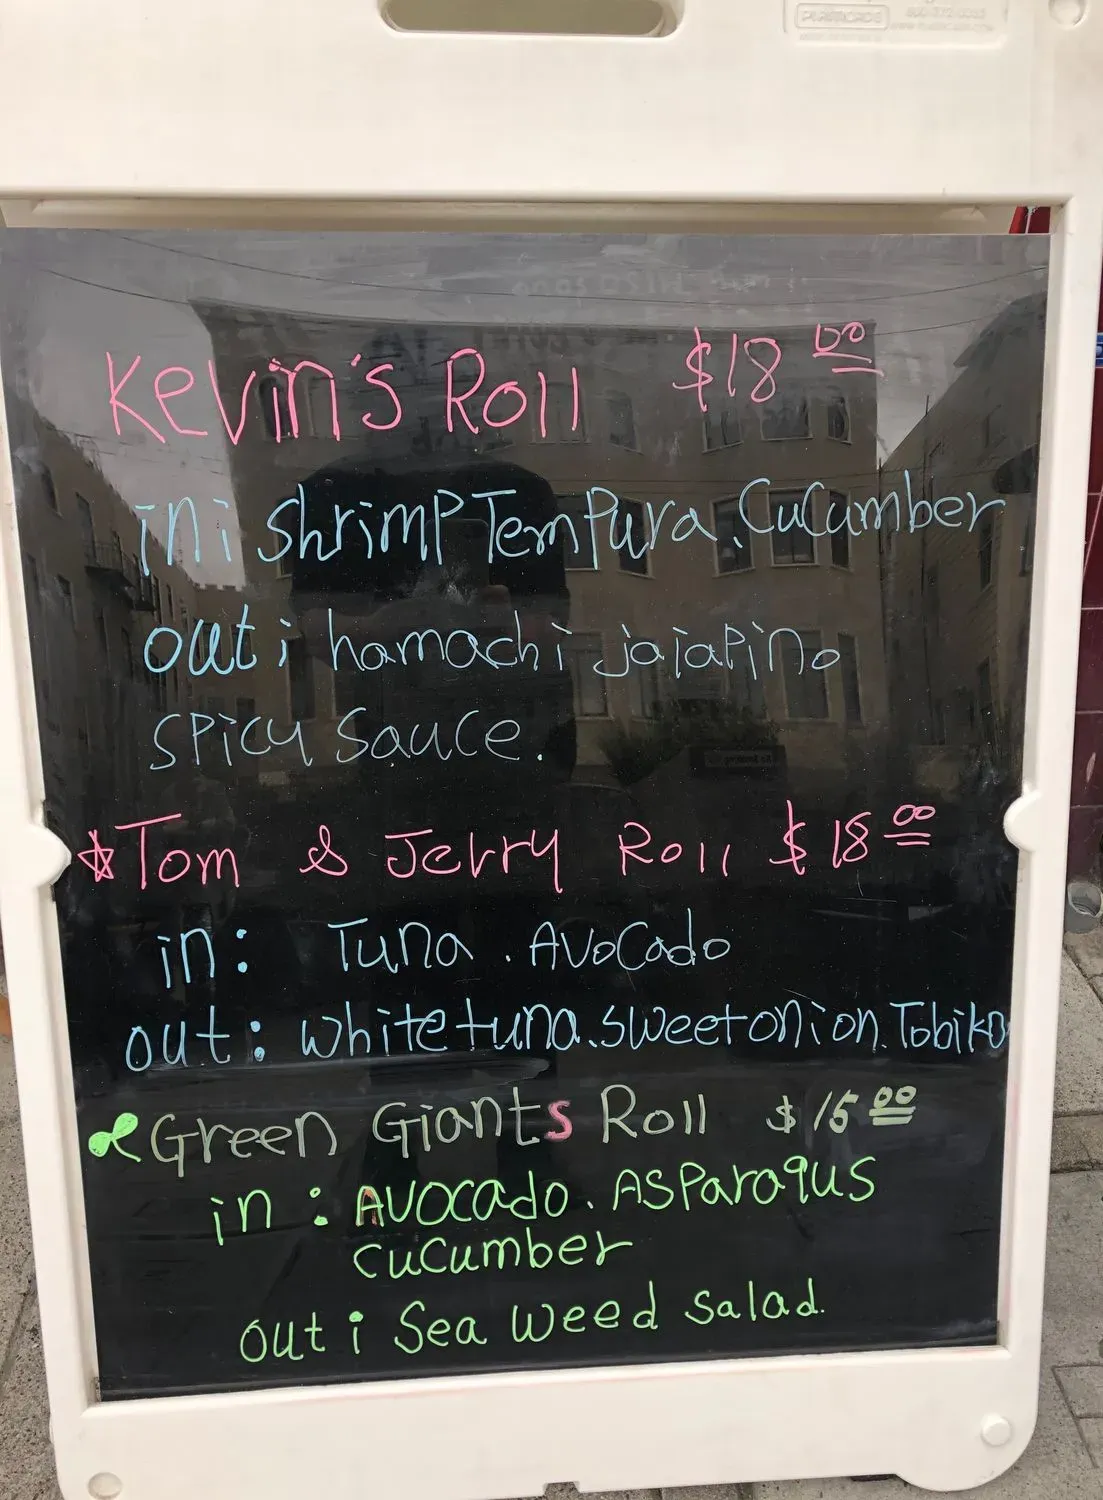 PLASTICADE
Kevin's Roll $18 00
in: Shrimp Tempura. Cucumber
out: hamachi jajapino
spicy sauce.
Tom & Jerry Roll $18 00
in: Tuna. Avocado
out: white tuna. sweet onion. Tobiko
Green Giants Roll $15 00
in: Avocado. Asparaqus
cucumber
out: Sea weed salad.